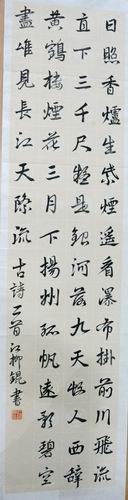 日照香爐生紫煙遙看瀑布掛前川飛流
直下三千尺疑是銀河落九天故人西辭
黃鶴樓煙花三月下揚州孤帆遠影碧空
盡唯見長江天際流 古詩二首江柳錕書